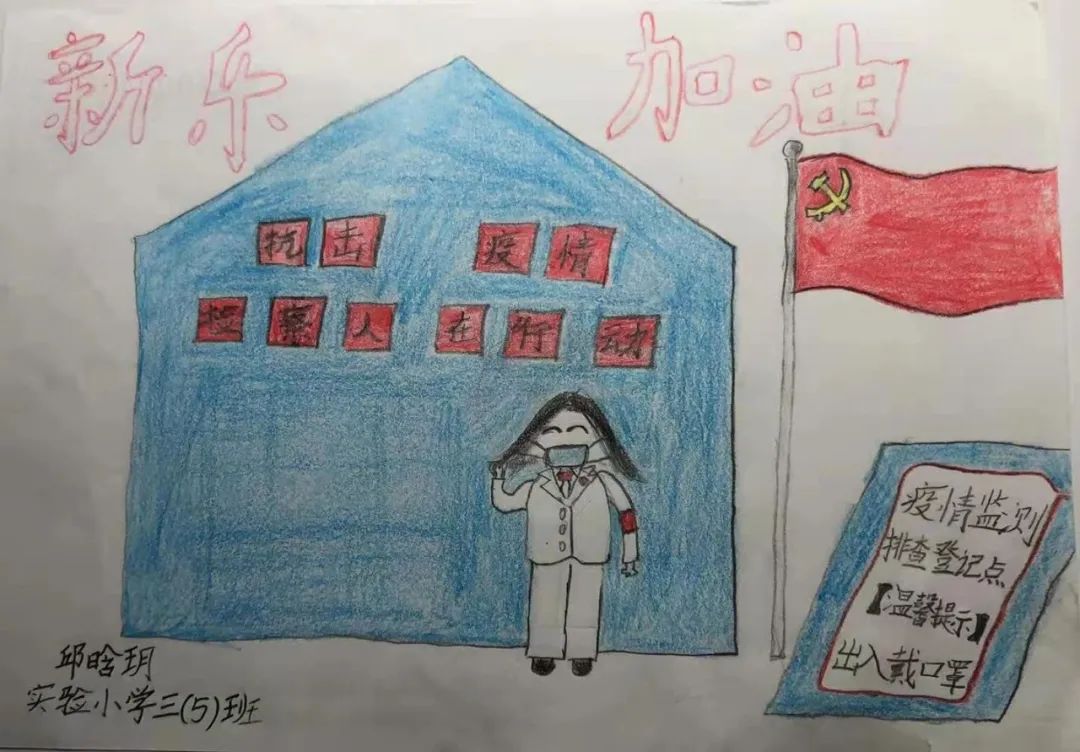 新乐 加油
抗击 疫情
检察人在行动
疫情监测
排查登记点
【温馨提示】
出入戴口罩
邱晗玥
实验小学三(5)班